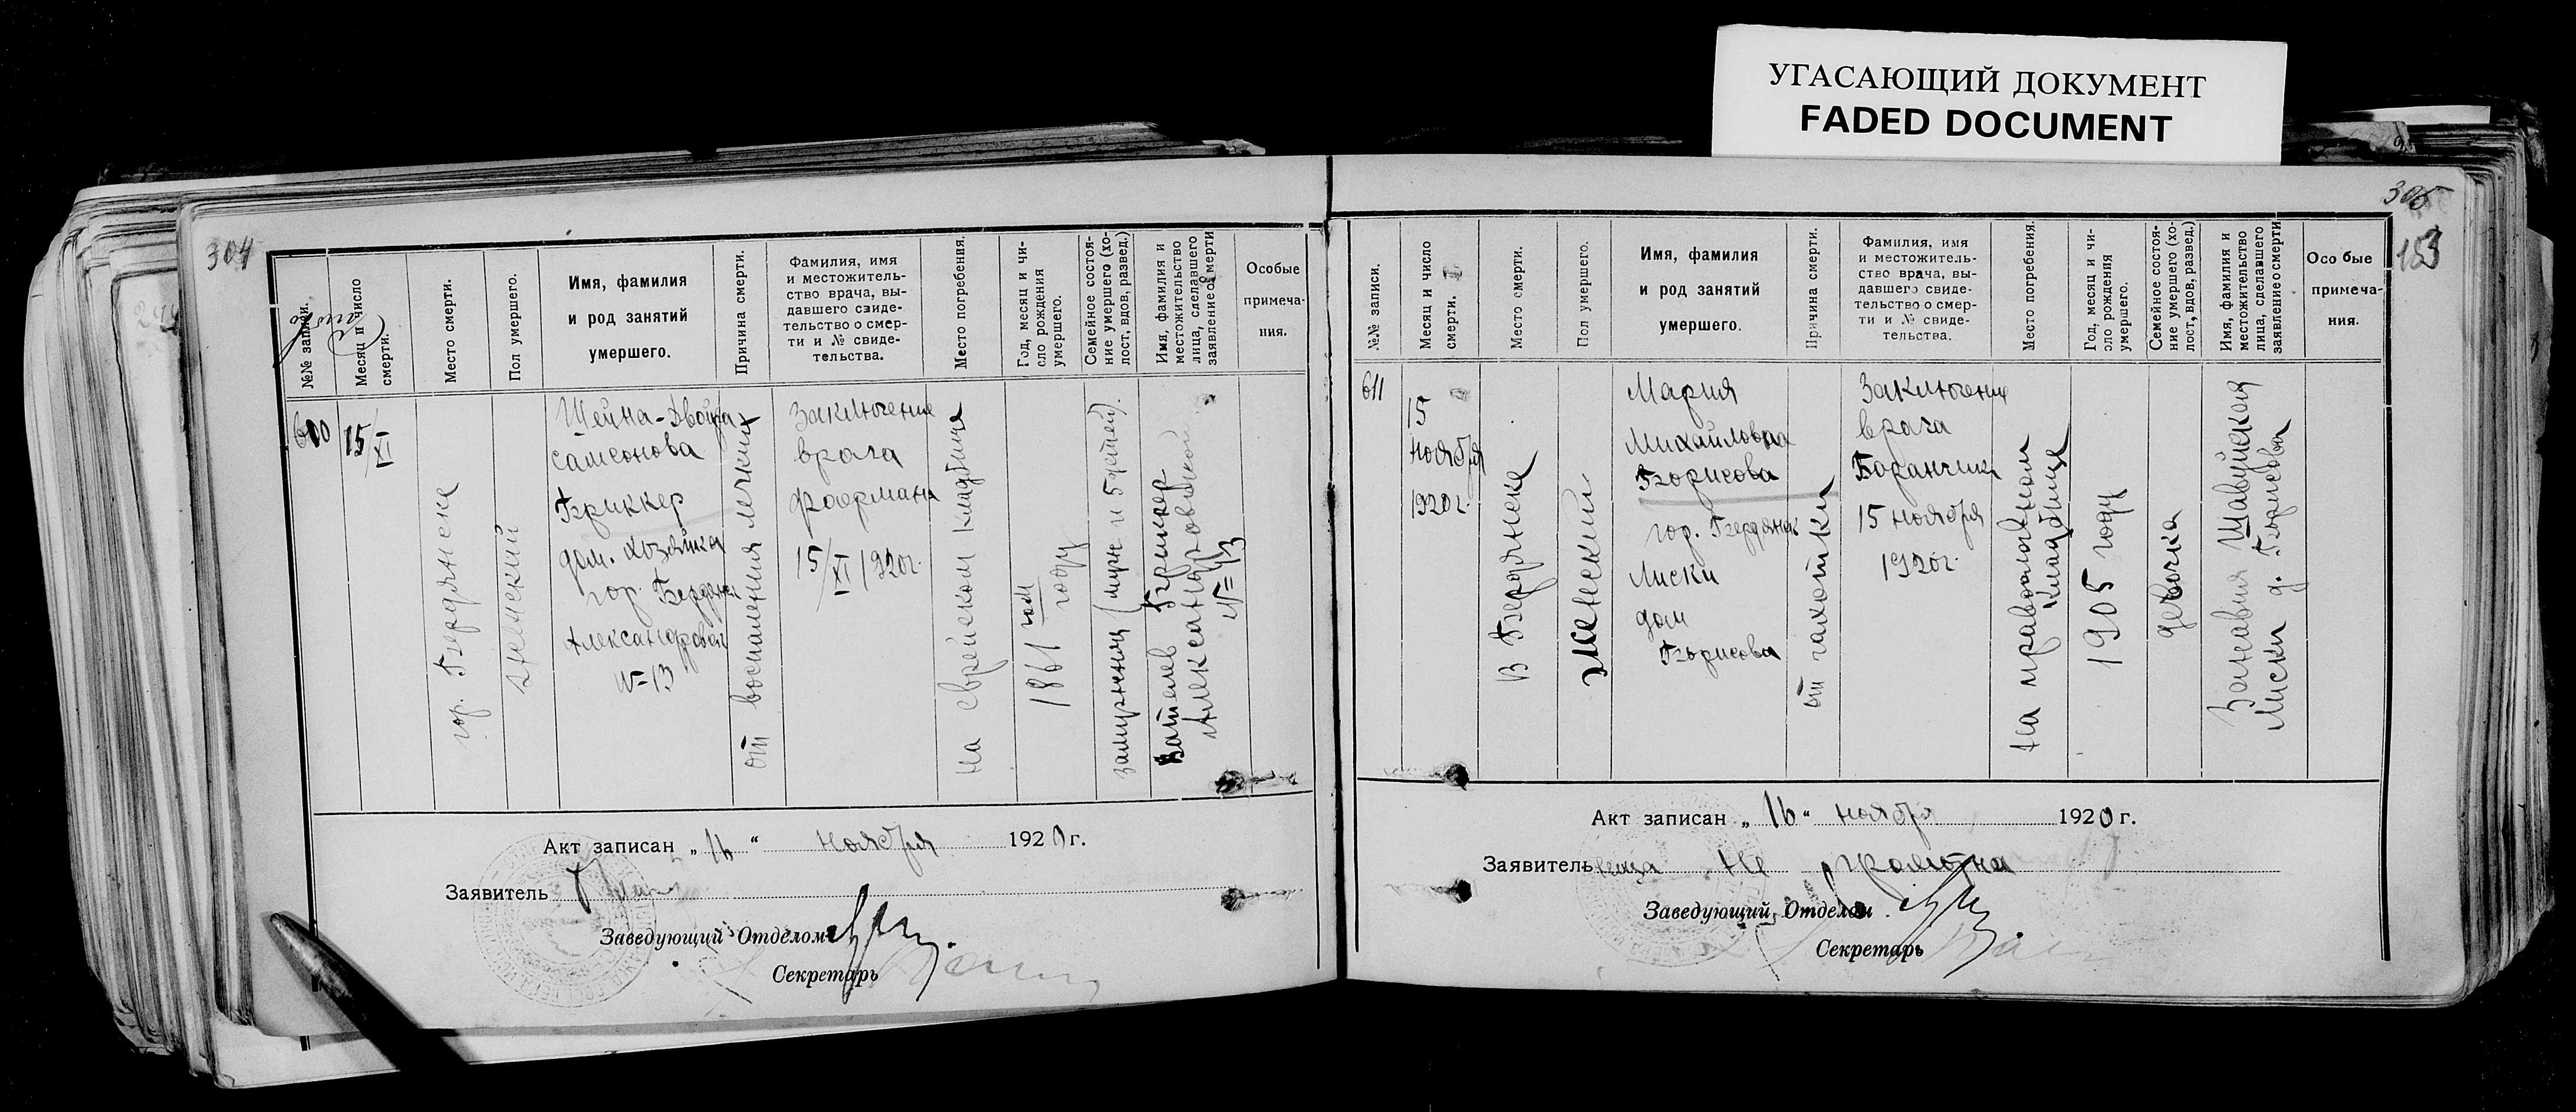 УГАСАЮЩИЙ ДОКУМЕНТ
FADED DOCUMENT
304
№№ записи.
Месяц и число
смерти.
Место смерти.
Пол умершего.
Имя, фамилия
и род занятий
умершего.
Причина смерти.
Фамилия, имя
и местожитель-
ство врача, вы-
давшего свиде-
тельство о смер-
ти и № свиде-
тельства.
Место погребения.
Год, месяц и чи-
сло рождения
умершего.
Семейное состоя-
ние умершего (хо-
лост, вдов, развед.)
Имя, фамилия и
местожительство
лица, сделавшего
заявление о смерти
Особые
примеча-
ния.
610
15/XI
гор. Бердянске
женский
Шейна-Двойра
Самсонова
Бриккер
дом. хозяйка
гор. Бердянск
Александровск
№=13
от воспаления легких
Заключение
врача
Фаермана
15/XI 1920г.
на еврейском кладбище
1861 году
замужняя (муж и 5 детей).
Бриккер
Александровской
№=13
Акт записан „16“ ноября 1920г.
Заявитель
Заведующий Отделом
Секретарь
305
153
№№ записи.
Месяц и число
смерти.
Место смерти.
Пол умершего.
Имя, фамилия
и род занятий
умершего.
Причина смерти.
Фамилия, имя
и местожитель-
ство врача, вы-
давшего свиде-
тельство о смер-
ти и № свиде-
тельства.
Место погребения.
Год, месяц и чи-
сло рождения
умершего.
Семейное состоя-
ние умершего (хо-
лост, вдов, развед.)
Имя, фамилия и
местожительство
лица, сделавшего
заявление о смерти
Особые
примеча-
ния.
611
15
ноября
1920г.
в Бердянске
женский
Мария
Михайловна
Борисова
гор. Бердянск
Лиски
дом
Борисова
от чахотки
Заключение
врача
Баранчик
15 ноября
1920г.
на православном
кладбище
1905 году
девочка
Шавуйская
Лиски д. Борисова
Акт записан „16“ ноября 1920г.
Заявительница не грамотна
Заведующий Отделом
Секретарь